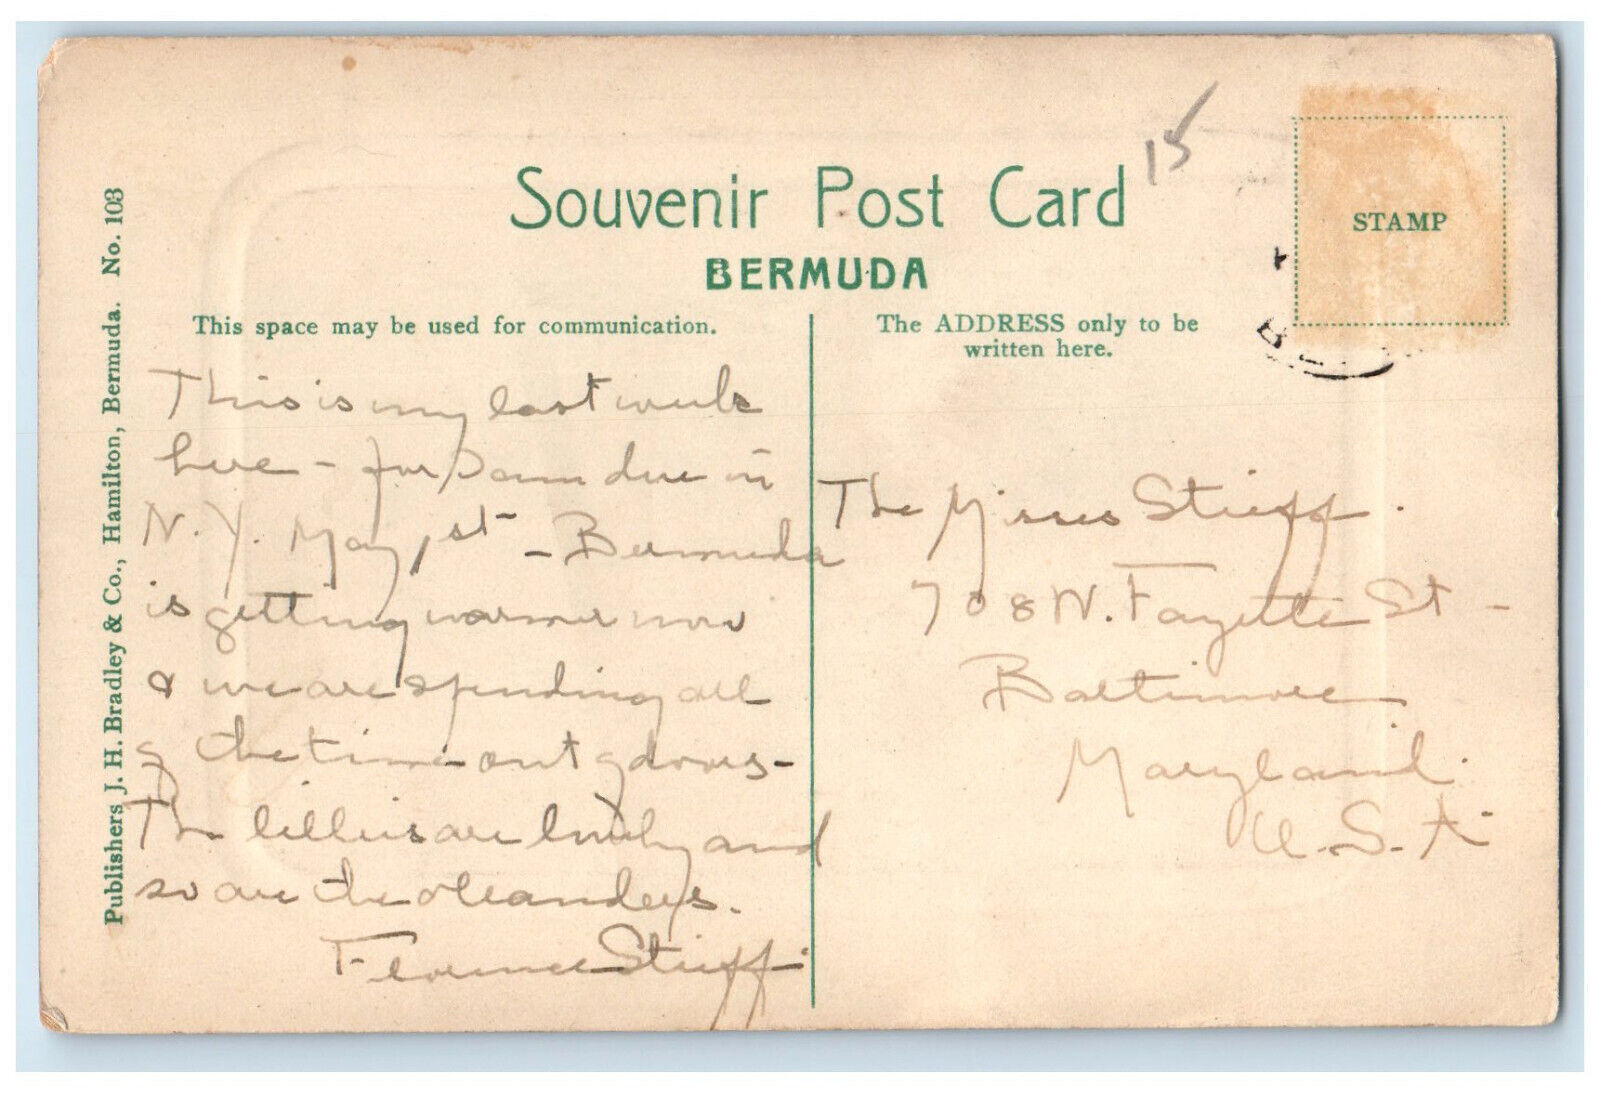 Souvenir Post Card
15
BERMUDA
STAMP
This space may be used for communication.
The ADDRESS only to be
written here.
Publishers J. H. Bradley & Co., Hamilton, Bermuda. No. 103
This is my last week
here - for I am due in
N. Y. May 1st - Bermuda
is getting warmer now
& we are spending all
of the time out of doors -
The lillies are lovely and
so are the oleanders.
Florence Stieff
The Misses Stieff.
708 W. Fayette St -
Baltimore
Maryland.
U. S. A.